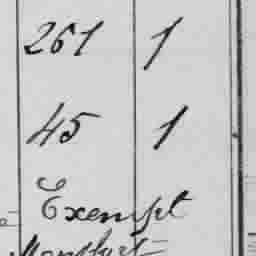 261 1
45 1
Exempt